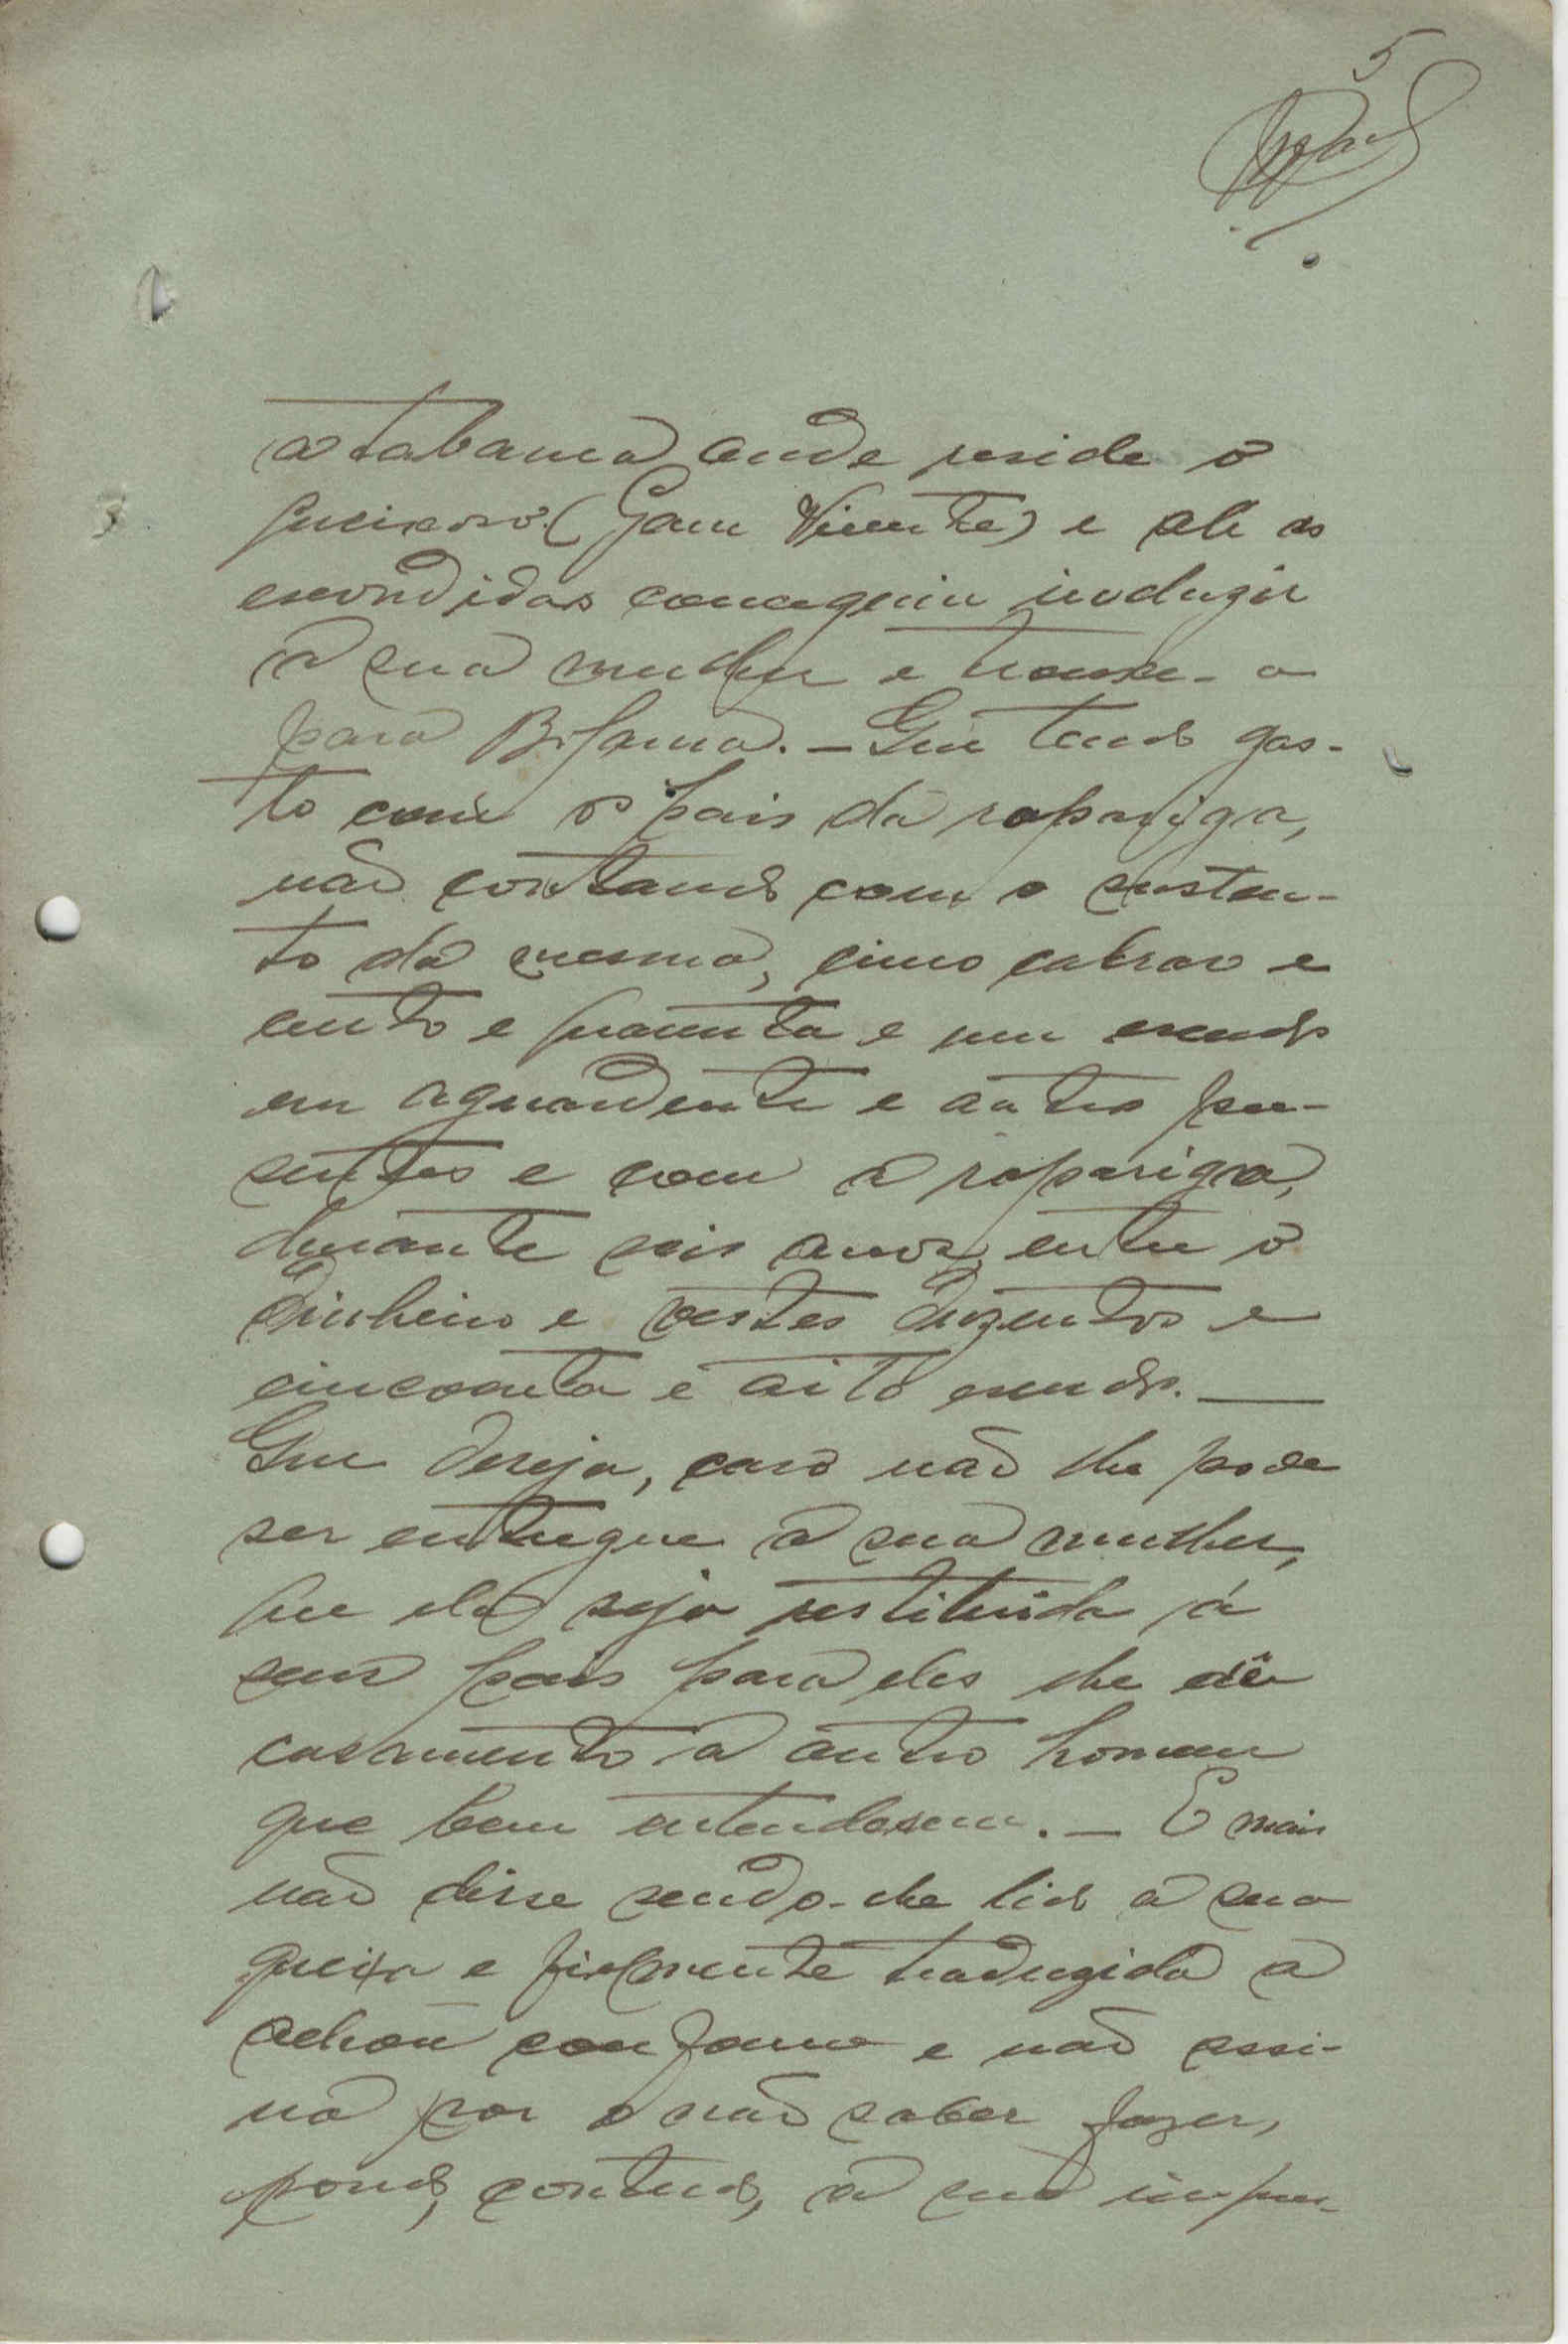 5
a tabanca onde reside o
queixoso (Gam Vicente) e ali as
escondidas conseguiu induzir
a sua mulher e trouxe-a
para Bissama. — Que tendo gas-
to com os pais da rapariga,
não contando com o susten-
to da mesma, cinco cabras e
cento e quarenta e um escudos
em aguardente e outros pre-
sentes e com a rapariga,
durante seis anos, entre o
dinheiro e vestes duzentos e
cincoenta e oito escudos. —
Que deseja, caso não lhe pode
ser entregue a sua mulher,
que ela seja restituida á
seus pais para eles lhe dê
casamento a outro homem
que bem entendesem. — E mais
não disse sendo-lhe lido a sua
queixa e fielmente traduzida a
achou conforme e não assi-
na por o não saber fazer,
pondo, contudo, a sua impres-